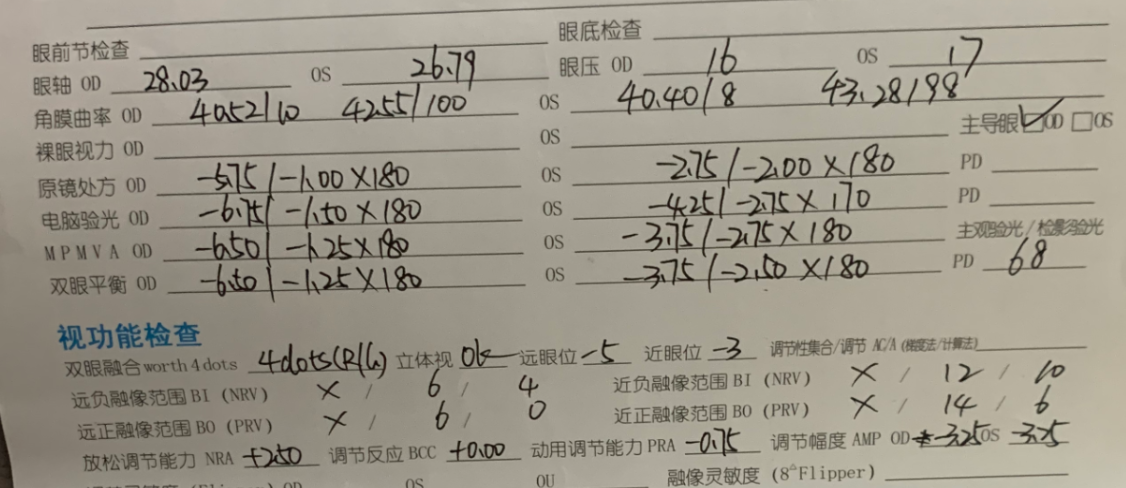 眼前节检查 眼底检查
眼轴 OD 28.03 OS 26.79 眼压 OD 16 OS 17
角膜曲率 OD 40.52/10 42.55/100 OS 40.40/8 43.28/98
裸眼视力 OD OS 主导眼 ☑OD □OS
原镜处方 OD -5.75/-1.00×180 OS -2.75/-2.00×180 PD
电脑验光 OD -6.75/-1.50×180 OS -4.25/-2.75×170 PD
MPMVA OD -6.50/-1.25×180 OS -3.75/-2.75×180 主观验光/检影验光
双眼平衡 OD -6.50/-1.25×180 OS -3.75/-2.50×180 PD 68
视功能检查
双眼融合worth4dots 4dots(R/G) 立体视 Ok 远眼位 -5 近眼位 -3 调节性集合/调节 AC/A (梯度法/计算法)
远负融像范围 BI (NRV) × / 6 / 4 近负融像范围 BI (NRV) × / 12 / 10
远正融像范围 BO (PRV) × / 6 / 0 近正融像范围 BO (PRV) × / 14 / 6
放松调节能力 NRA +2.50 调节反应 BCC +0.00 动用调节能力 PRA -0.75 调节幅度 AMP OD -3.25 OS -3.25
OD OS OU 融像灵敏度 (8△Flipper)